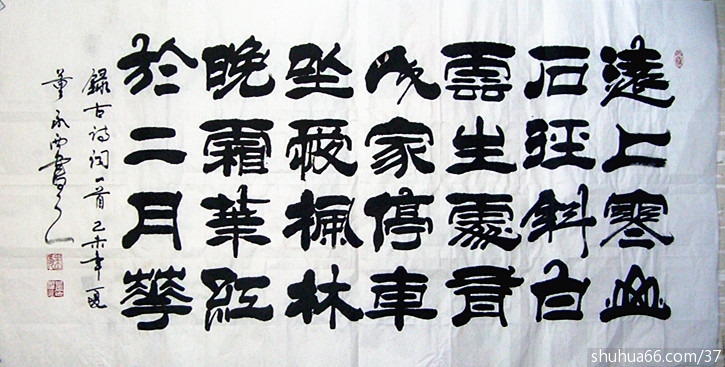 遠上寒山
石徑斜白
雲生處有
人家停車
坐愛楓林
晚霜葉紅
於二月華
錄古诗词一首 己未年夏
董永西書
shuhua66.com/37